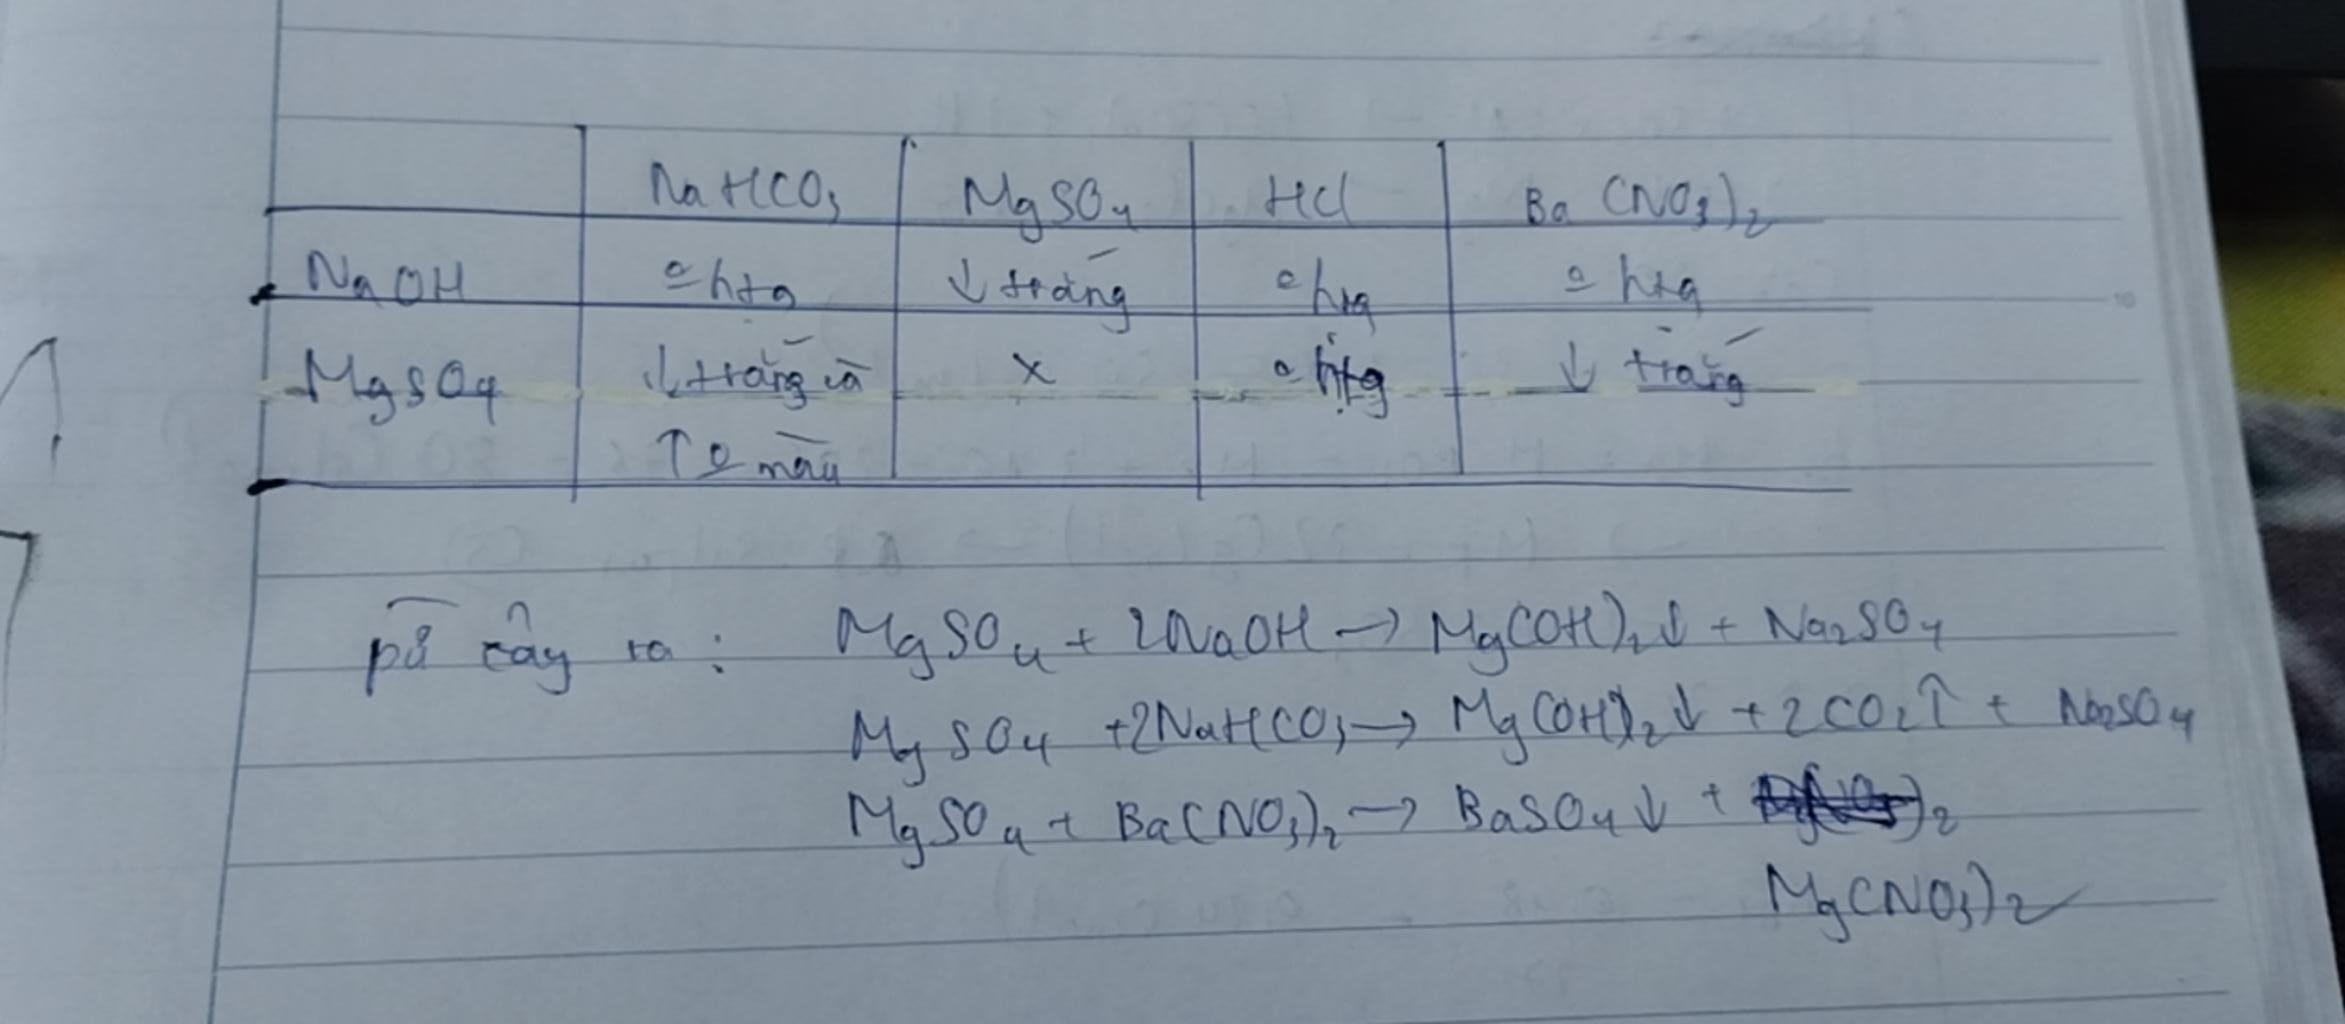 NaHCO3 MgSO4 HCl Ba(NO3)2
NaOH o htg ↓ trắng o htg o htg
MgSO4 ↓ trắng và x o htg ↓ trắng
↑ o màu
pứ xảy ra : MgSO4 + 2NaOH → Mg(OH)2↓ + Na2SO4
MgSO4 +2NaHCO3 → Mg(OH)2↓ + 2CO2↑ + Na2SO4
MgSO4 + Ba(NO3)2 → BaSO4↓ +
Mg(NO3)2